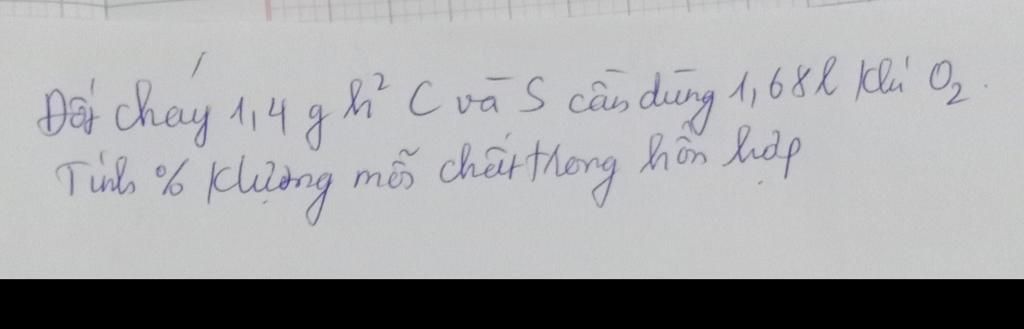 Đốt cháy 1,4 g h² C và S cần dùng 1,68l khí O₂.
Tính % Klượng mỗi chất trong hỗn hợp